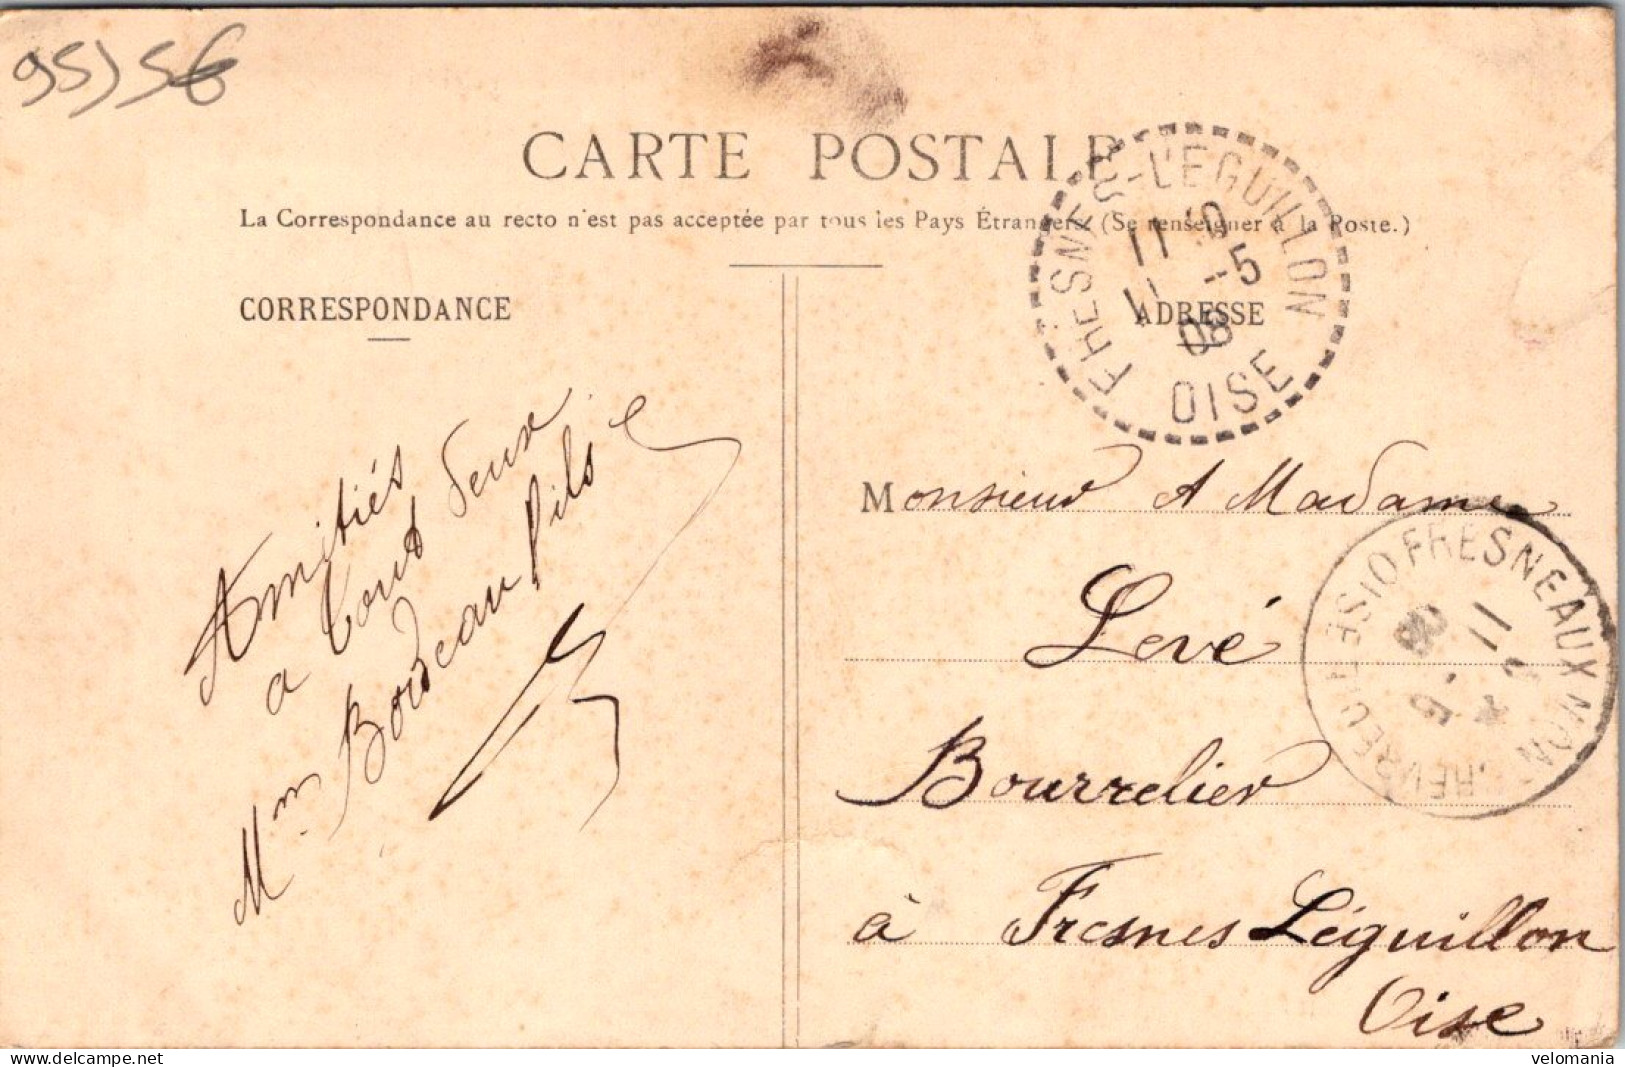 95) 56
CARTE POSTALE
La Correspondance au recto n'est pas acceptée par tous les Pays Étrangers. (Se renseigner à la Poste.)
CORRESPONDANCE
ADRESSE
FRESNES-L'EGUILLON
11
11 -5
08
OISE
Amitiés
a tous deux
Mme Bordeau fils
Monsieur et Madame
Levé
Bourrelier
à Fresnes Léguillon
Oise
FRESNEAUX MONTCHEVREUIL OISE
11
5
08
velomania